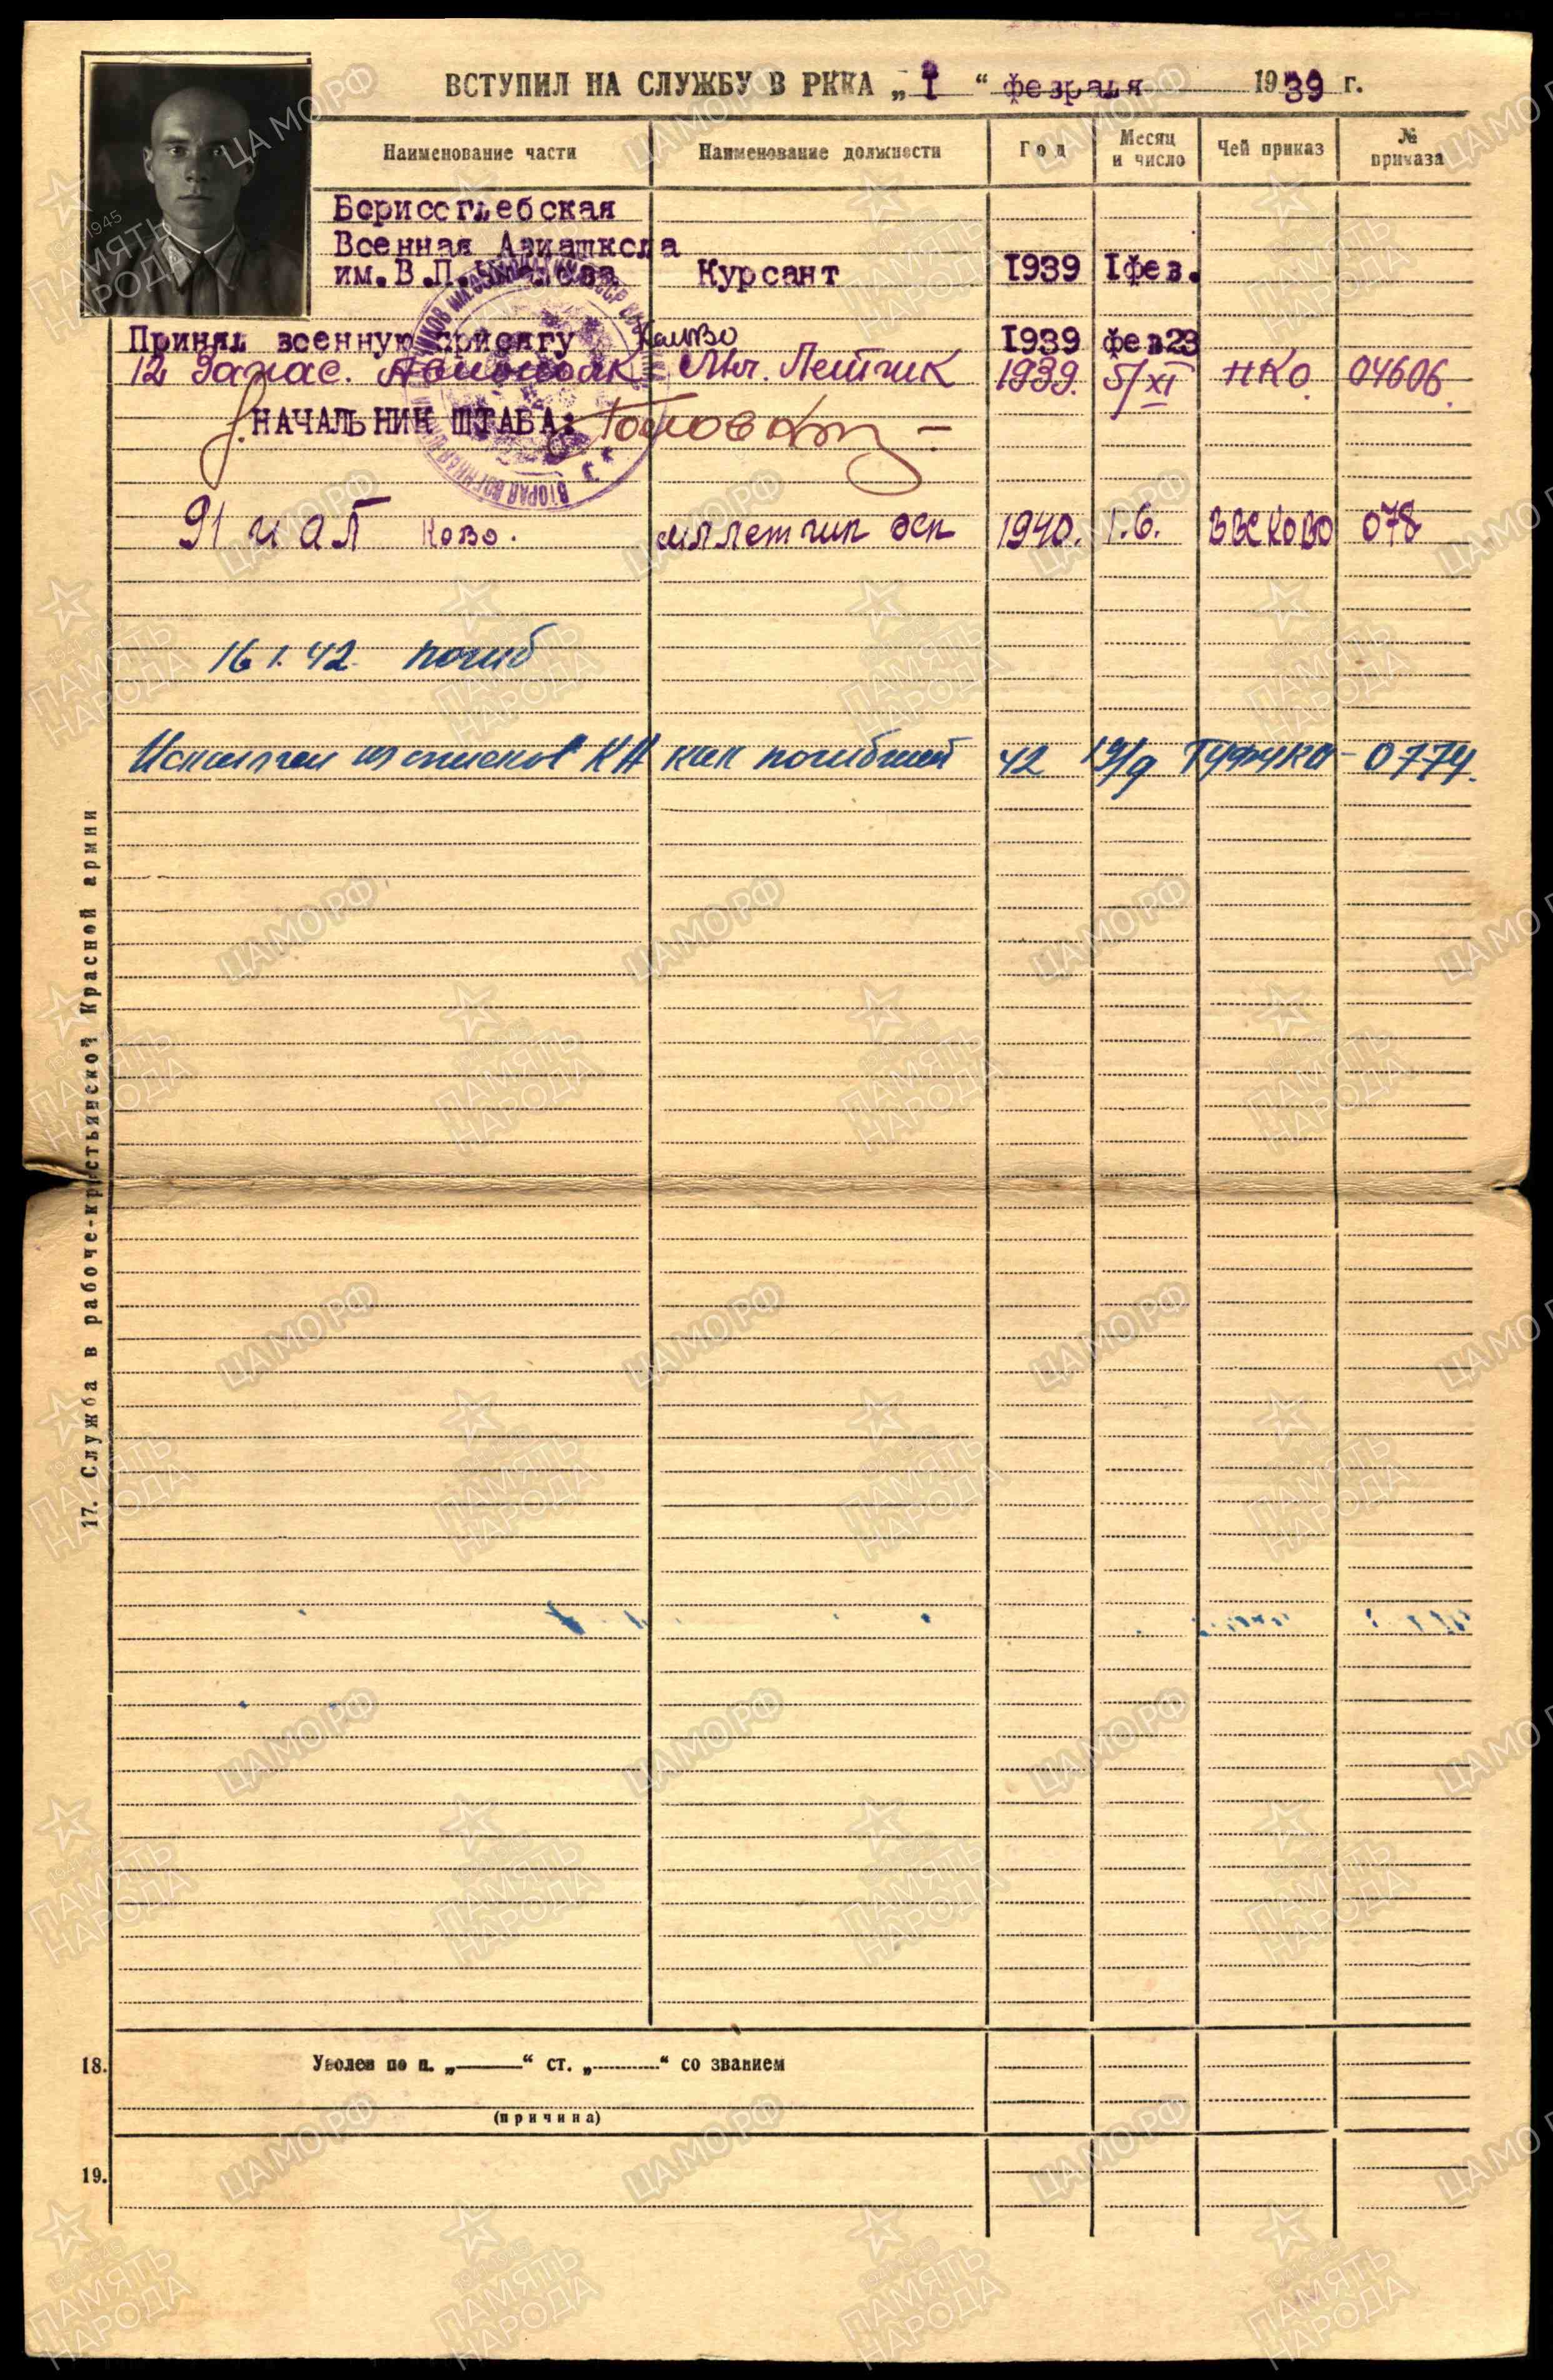 ВСТУПИЛ НА СЛУЖБУ В РККА „1“ февраля 1939 г.
Наименование части Наименование должности Год Месяц и число Чей приказ № приказа
Борисоглебская
Военная Авиашкола
им. В.П. Чкалова Курсант 1939 1фев.
Принял военную присягу 1939 фев23
12 Запас. Авиаполк Мл. Летчик 1939. 5/XI НКО 04606.
НАЧАЛЬНИК ШТАБА:
91 иАП Ково. мл летчик эск 1940. 1.6. ВВС КОВО 078
16 1. 42. погиб
Исключен из списков КА как погибший 42 19/9 ГУФУКА 0774.
17. Служба в рабоче-крестьянской Красной армии
18. Уволен по п. „ “ ст. „ “ со званием
(причина)
19.
ЦАМО РФ
1941-1945
ПАМЯТЬ
НАРОДА